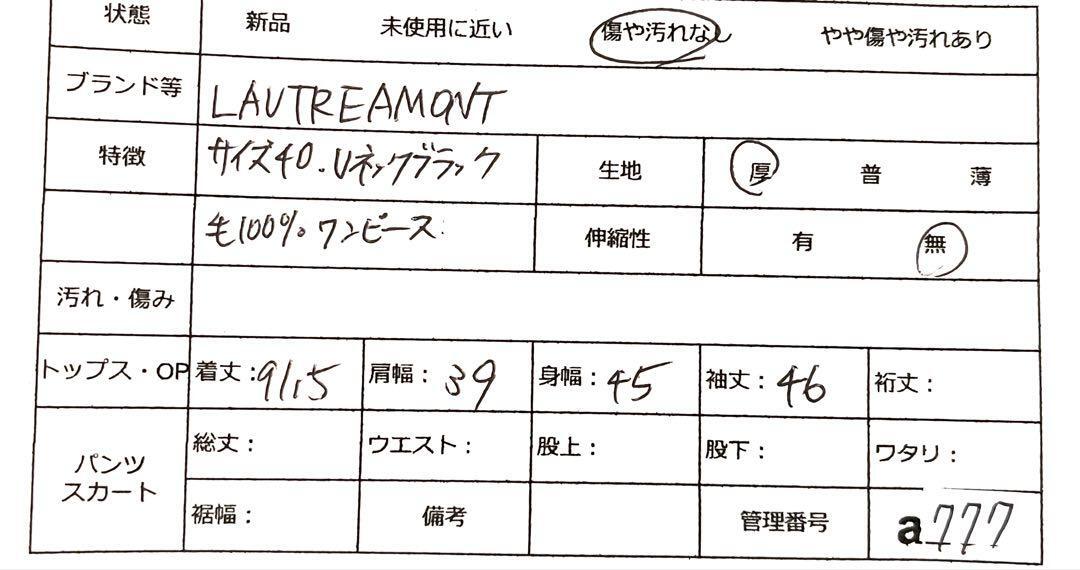 状態 新品 未使用に近い 傷や汚れなし やや傷や汚れあり
ブランド等 LAUTREAMONT
特徴 サイズ40.Vネックブラック 生地 厚 普 薄
毛100%ワンピース 伸縮性 有 無
汚れ・傷み
トップス・OP 着丈:91.5 肩幅:39 身幅:45 袖丈:46 裄丈:
パンツ スカート 総丈: ウエスト: 股上: 股下: ワタリ:
裾幅: 備考 管理番号 a777